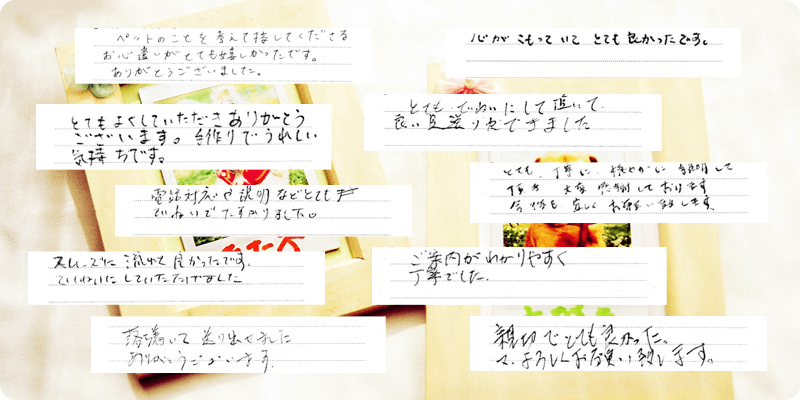 ペットのことを考えて接してくださる
お心遣いがとても嬉しかったです。
ありがとうございました。
心がこもっていてとても良かったです。
とてもよくしていただきありがとう
ございます。手作りでうれしい
気持ちです。
とても、ていねいにして頂いて、
良い見送りができました
電話対応や説明などとても
ていねいでたすかりました。
とても、丁寧に、穏やかに説明して
頂き大変感謝しております
今後も宜しくお願い致します。
スムーズに流れて良かったです。
ていねいにしていただけました
ご案内がわかりやすく
丁寧でした。
落着いて送り出せました
ありがとうございます.
親切でとても良かった。
よろしくお願い致します。